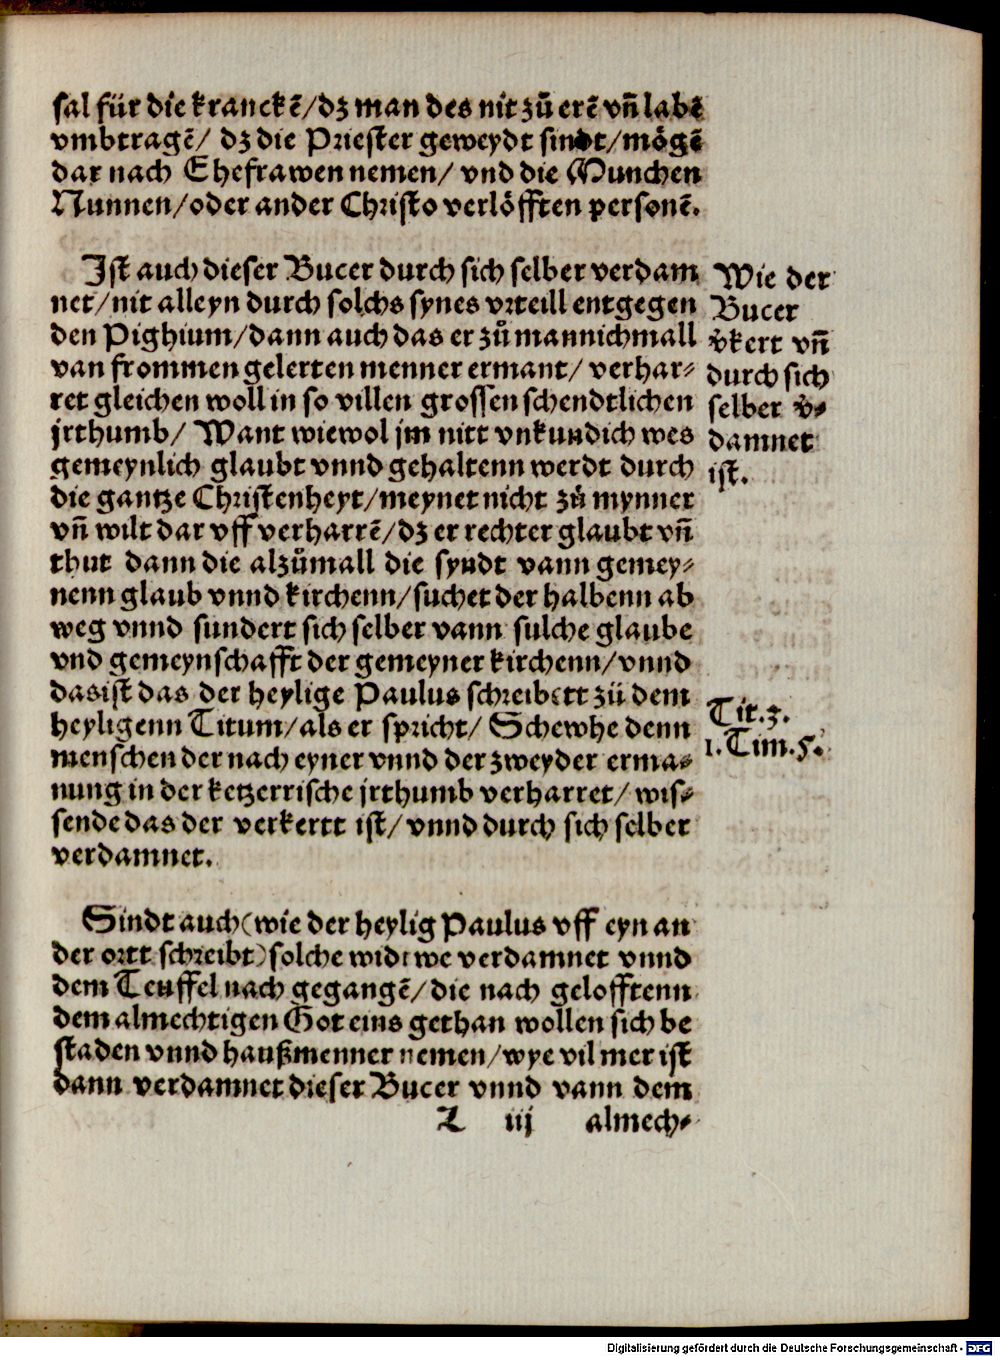 sal für die kranckē/dz man des nit zů erē vñ labē
vmbtragē/ dz die Priester geweydt sindt/mögē
dar nach Ehefrawen nemen/ vnd die Munchen
Nunnen/oder ander Christo verlöfften personē.
Jst auch dieser Bucer durch sich selber verdam
net/nit alleyn durch solchs synes vrteill entgegen
den Pighium/dann auch das er zů mannichmall
van frommen gelerten menner ermant/ verhar⸗
ret gleichen woll in so villen grossen schendtlichen
jrthumb/ Want wiewol jm nitt vnkundich wes
gemeynlich glaubt vnnd gehaltenn werdt durch
die gantze Christenheyt/meynet nicht zů mynner
vñ wilt dar vff verharrē/dz er rechter glaubt vñ
thut dann die alzůmall die syndt vann gemey⸗
nenn glaub vnnd kirchenn/suchet der halbenn ab
weg vnnd sundert sich selber vann sulche glaube
vnd gemeynschafft der gemeyner kirchenn/vnnd
dasist das der heylige Paulus schreibett zü dem
heyligenn Titum/als er spricht/ Schewhe denn
menschen der nach eyner vnnd der zweyder erma⸗
nung in der ketzerrische jrthumb verharret/ wis⸗
sende das der verkertt ist/ vnnd durch sich selber
verdamnet.
Wie der
Bucer
v̄kert vñ
durch sich
selber v̄⸗
damnet
ist.
Tit.3.
1.Tim.5.
Sindt auch (wie der heylig Paulus vff eyn an
der ortt schreibt) solche widtwe verdamnet vnnd
dem Teuffel nach gegangē/die nach gelofftenn
dem almechtigen Got eins gethan wollen sich be
staden vnnd haußmenner nemen/wye vil mer ist
dann verdamnet dieser Bucer vnnd vann dem
L iij almech⸗
Digitalisierung gefördert durch die Deutsche Forschungsgemeinschaft - DFG